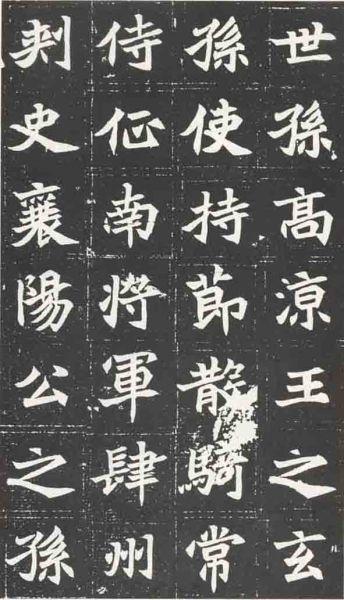 世孫髙涼王之玄
孫使持莭散騎常
侍佂南將軍肆州
刾史襄陽公之孫